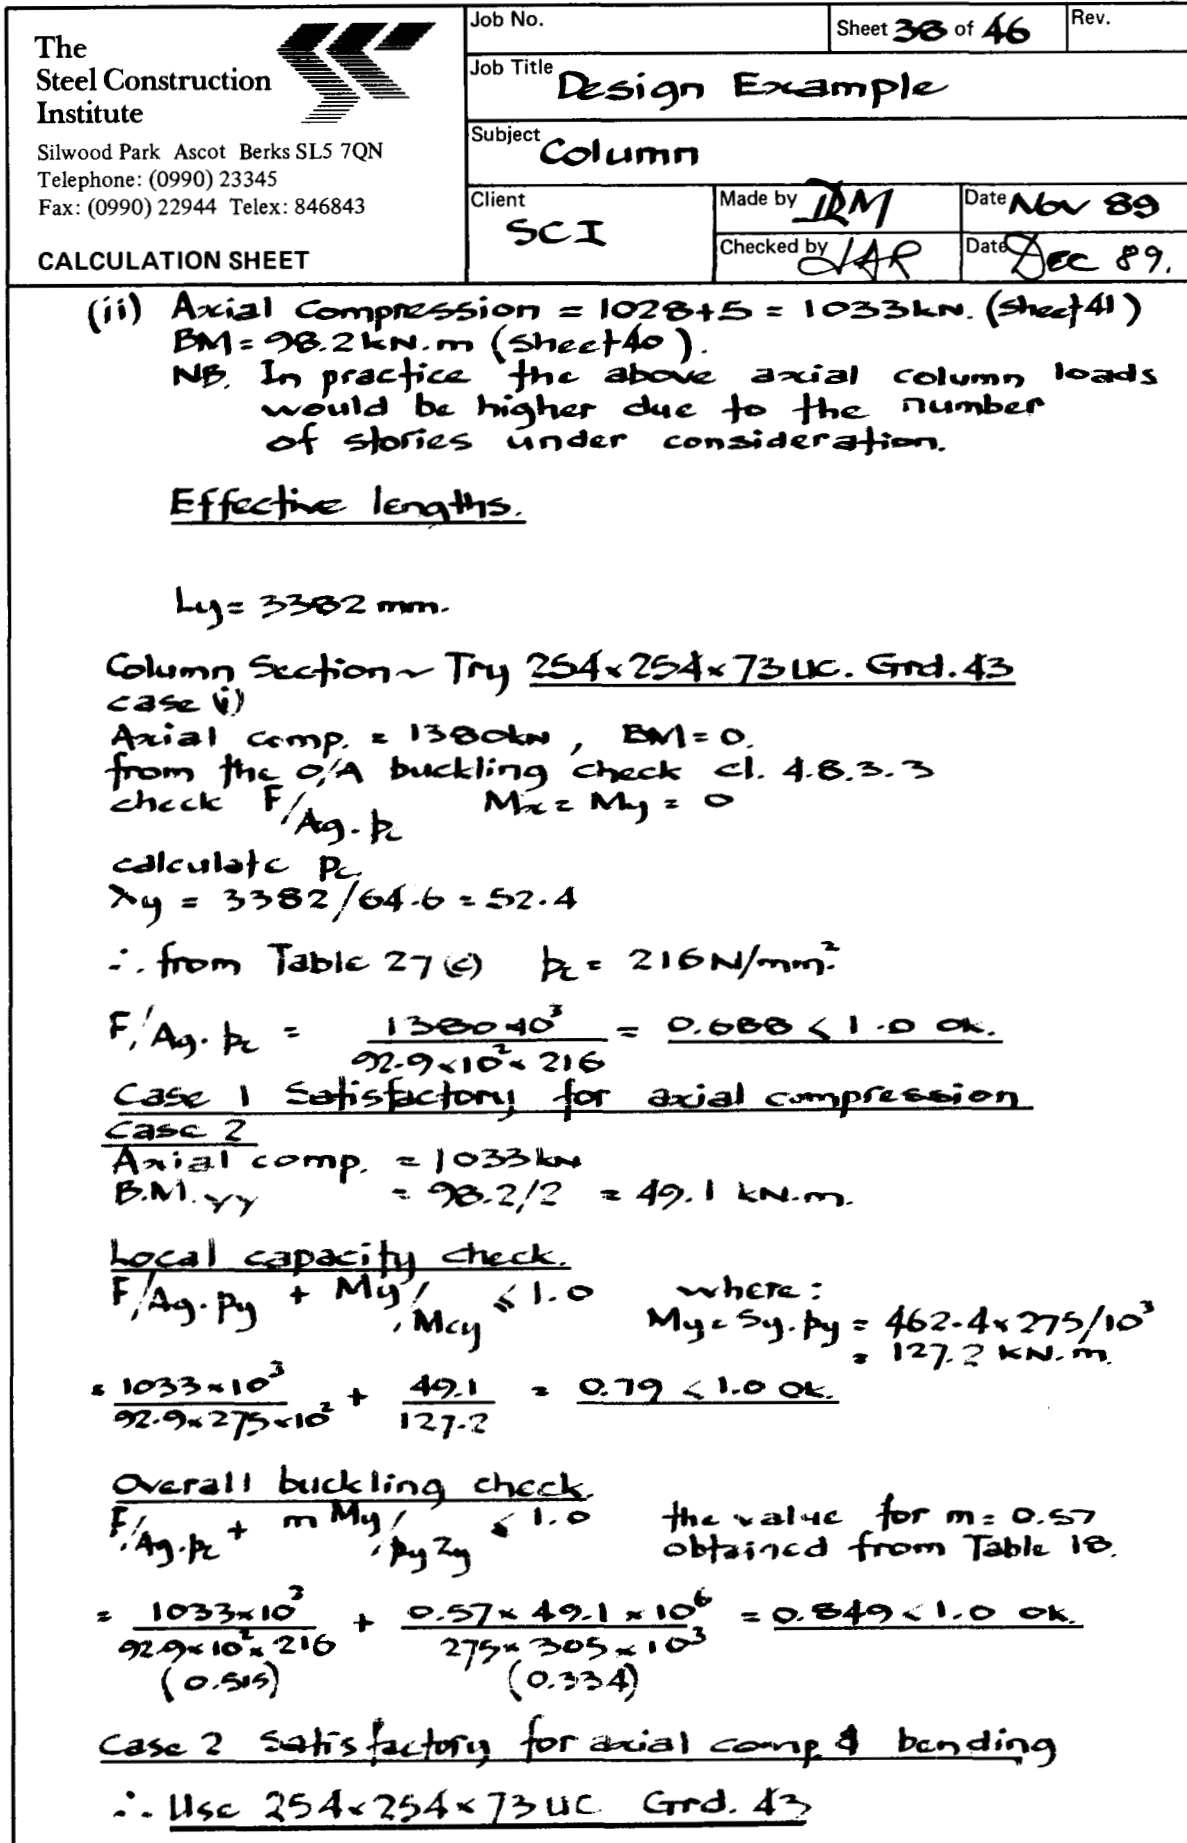 The
Steel Construction
Institute
Silwood Park Ascot Berks SL5 7QN
Telephone: (0990) 23345
Fax: (0990) 22944 Telex: 846843
CALCULATION SHEET
Job No.
Sheet 38 of 46
Rev.
Job Title Design Example
Subject Column
Client SCI
Made by DRM
Date Nov 89
Checked by JAR
Date Dec 89.
(ii) Axial Compression = 1028+5 = 1033kN. (Sheet 41)
BM = 98.2 kN.m (Sheet 40).
NB. In practice the above axial column loads
would be higher due to the number
of stories under consideration.
Effective lengths.
Ly = 3382 mm.
Column Section ~ Try 254×254×73 UC. Grd. 43
case i)
Axial comp. = 1380kN, BM = 0.
from the O/A buckling check cl. 4.8.3.3
check F/Ag.pc Mx = My = 0
calculate pc
λy = 3382/64.6 = 52.4
∴ from Table 27(c) pc = 216 N/mm².
F/Ag.pc = 1380×10³ / 92.9×10²×216 = 0.688 < 1.0 ok.
Case 1 Satisfactory for axial compression
Case 2
Axial comp. = 1033kN
B.M.yy = 98.2/2 = 49.1 kN.m.
Local capacity check.
F/Ag.py + My/Mcy ≤ 1.0 where:
My = Sy.py = 462.4×275/10³
= 127.2 kN.m.
= 1033×10³ / 92.9×275×10² + 49.1 / 127.2 = 0.79 < 1.0 ok.
Overall buckling check.
F/Ag.pc + m My/py Zy ≤ 1.0 the value for m = 0.57
obtained from Table 18.
= 1033×10³ / 92.9×10²×216 + 0.57×49.1×10⁶ / 275×305×10³ = 0.849 < 1.0 ok.
(0.515) (0.334)
Case 2 Satisfactory for axial comp & bending
∴ Use 254×254×73 UC Grd. 43